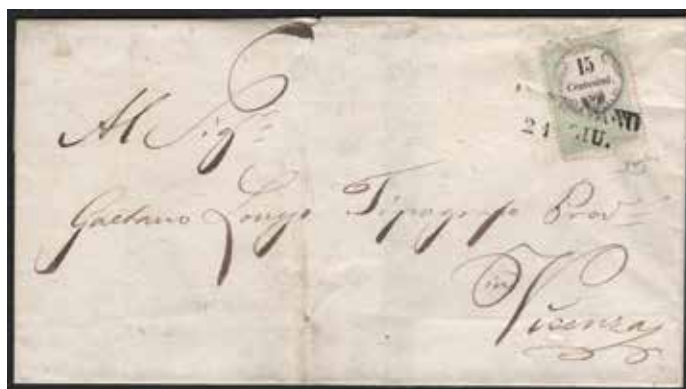 15
Centesimi
24 GIU.
Al Sig.r
Gaetano Longo Tipografo Prov.le
in
Vicenza